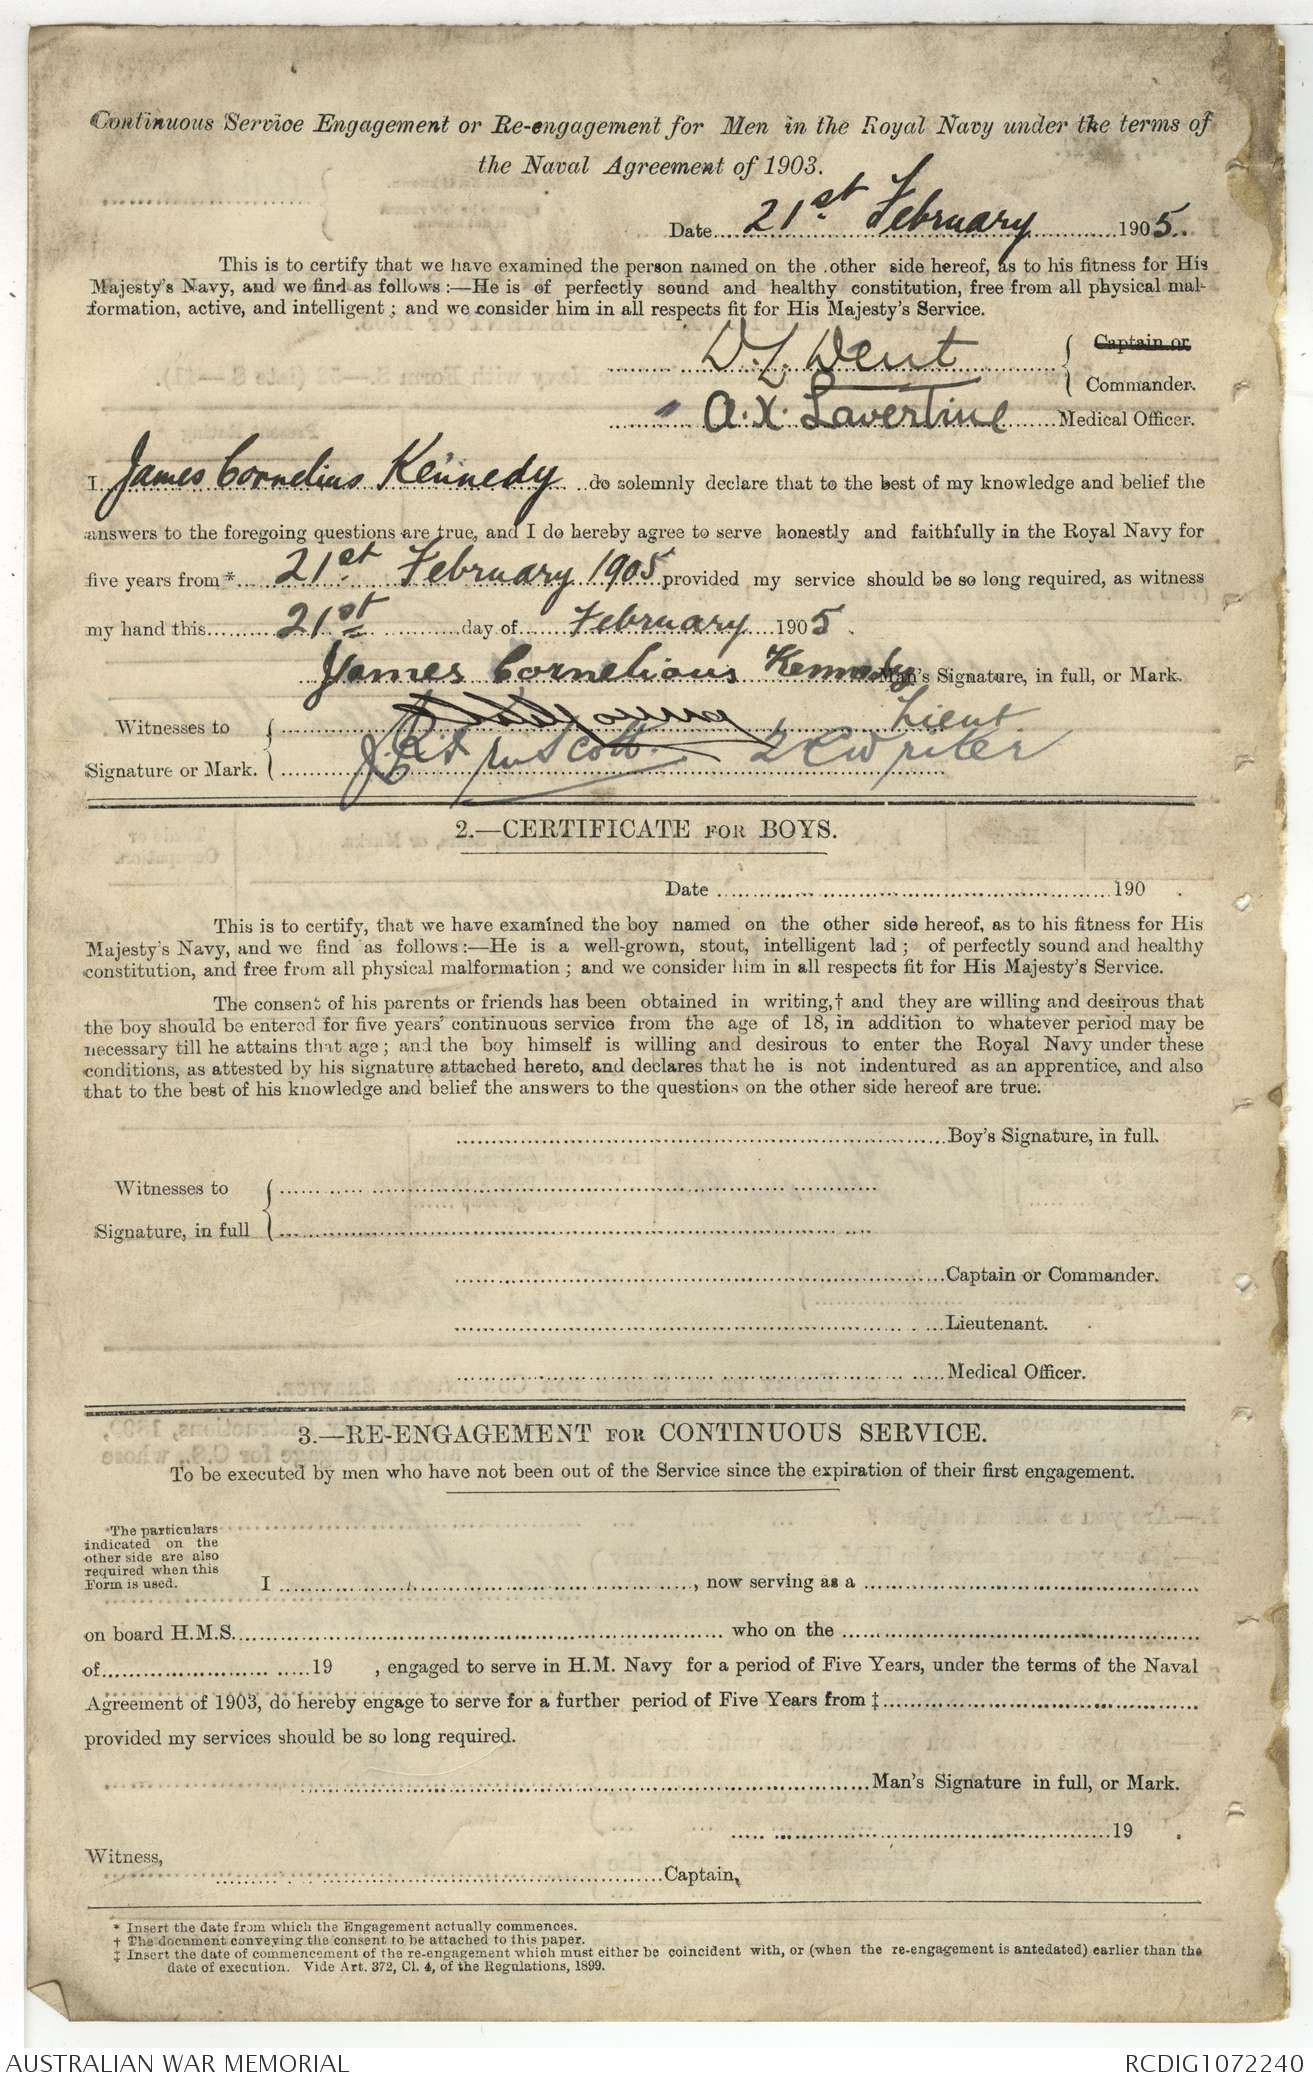 Continuous Service Engagement or Re-engagement for Men in the Royal Navy under the terms of
the Naval Agreement of 1903.
Date 21st February 1905.
This is to certify that we have examined the person named on the other side hereof, as to his fitness for His
Majesty's Navy, and we find as follows:—He is of perfectly sound and healthy constitution, free from all physical mal-
formation, active, and intelligent; and we consider him in all respects fit for His Majesty's Service.
D. L. Dent { Captain or
Commander.
A. X. Lavertine Medical Officer.
I James Cornelius Kennedy do solemnly declare that to the best of my knowledge and belief the
answers to the foregoing questions are true, and I do hereby agree to serve honestly and faithfully in the Royal Navy for
five years from* 21st February 1905 provided my service should be so long required, as witness
my hand this 21st day of February 1905.
James Cornelious Kennedy Man's Signature, in full, or Mark.
Witnesses to { Young Lieut
Signature or Mark. Scott. Writer
2.—CERTIFICATE FOR BOYS.
Date 190 .
This is to certify, that we have examined the boy named on the other side hereof, as to his fitness for His
Majesty's Navy, and we find as follows:—He is a well-grown, stout, intelligent lad; of perfectly sound and healthy
constitution, and free from all physical malformation; and we consider him in all respects fit for His Majesty's Service.
The consent of his parents or friends has been obtained in writing,† and they are willing and desirous that
the boy should be entered for five years' continuous service from the age of 18, in addition to whatever period may be
necessary till he attains that age; and the boy himself is willing and desirous to enter the Royal Navy under these
conditions, as attested by his signature attached hereto, and declares that he is not indentured as an apprentice, and also
that to the best of his knowledge and belief the answers to the questions on the other side hereof are true.
Boy's Signature, in full.
Witnesses to {
Signature, in full
Captain or Commander.
Lieutenant.
Medical Officer.
3.—RE-ENGAGEMENT FOR CONTINUOUS SERVICE.
To be executed by men who have not been out of the Service since the expiration of their first engagement.
The particulars
indicated on the
other side are also
required when this
Form is used.
I , now serving as a
on board H.M.S. who on the
of 19 , engaged to serve in H.M. Navy for a period of Five Years, under the terms of the Naval
Agreement of 1903, do hereby engage to serve for a further period of Five Years from ‡
provided my services should be so long required.
Man's Signature in full, or Mark.
19 .
Witness,
Captain,
* Insert the date from which the Engagement actually commences.
† The document conveying the consent to be attached to this paper.
‡ Insert the date of commencement of the re-engagement which must either be coincident with, or (when the re-engagement is antedated) earlier than the
date of execution. Vide Art. 372, Cl. 4, of the Regulations, 1899.
AUSTRALIAN WAR MEMORIAL
RCDIG1072240